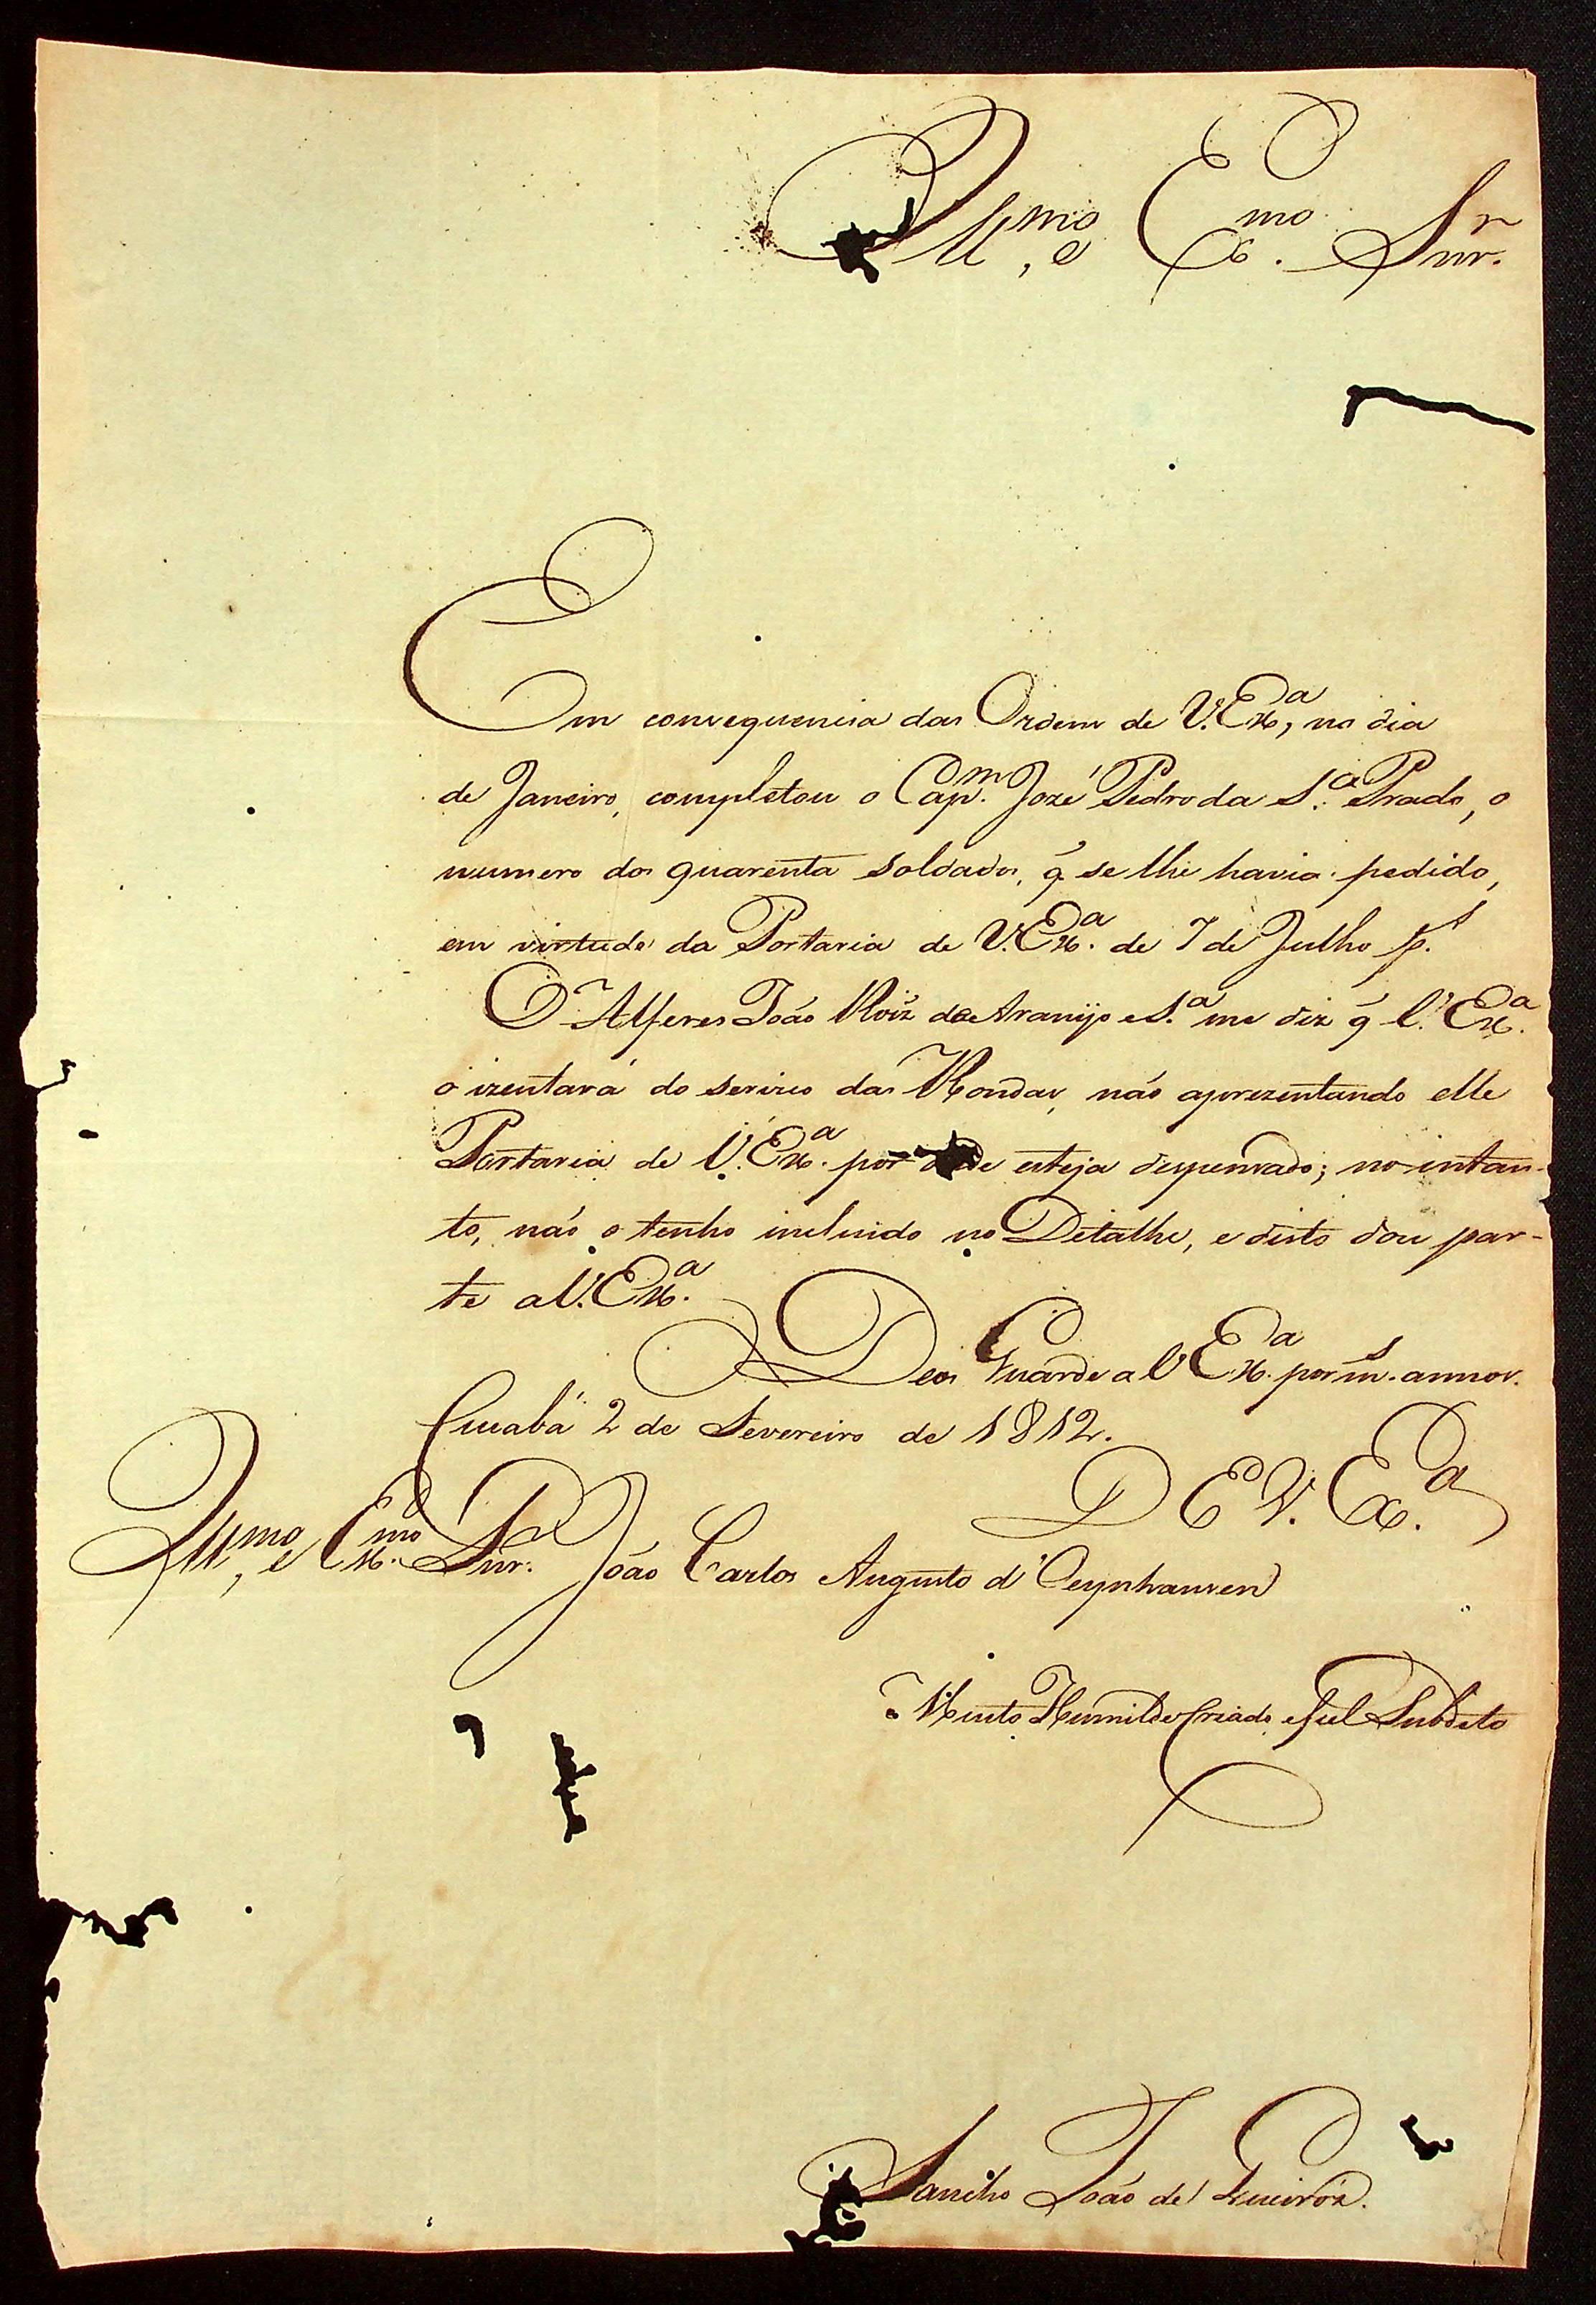 Ill.mo, e Ex.mo Snr.
Em consequencia das Ordens de V. Ex.a, no dia
de Janeiro, completou o Cap.m Jozé Pedro da S.a Prado, o
numero dos quarenta soldados, q̃ se lhe havia pedido,
em virtude da Portaria de V. Ex.a de 7 de Julho p.
O Alferes João Roiz de Araujo e S.a me diz q̃ V. Ex.a
o izentará do servico das Rondas, não aprezentando elle
Portaria de V. Ex.a por onde esteja dispensado; no intan-
to, não o tenho incluido no Detalhe, e disto dou par-
te a V. Ex.a
Deos Guarde a V Ex.a por m.s annos.
Cuiabá 2 de Fevereiro de 1812.
D E V. Ex.a
Ill.mo, e Ex.mo Snr. João Carlos Augusto d'Oeynhausen
Muito Humilde Criado, e fiel Subdito
Sancho João de Queiróz.